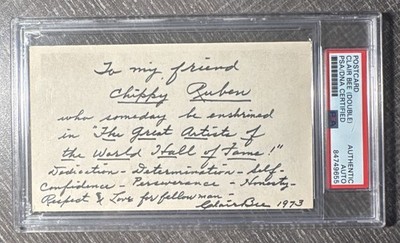 To my friend
Chippy Ruben
who someday be enshrined
in "The Great Artists of
the World Hall of Fame!"
Dedication - Determination - Self-
Confidence - Perseverance - Honesty -
Respect & Love for fellow man -
Clair Bee 1973
POSTCARD
CLAIR BEE (DOUBLE)
PSA/DNA CERTIFIED
AUTHENTIC
AUTO
84749655
PSA